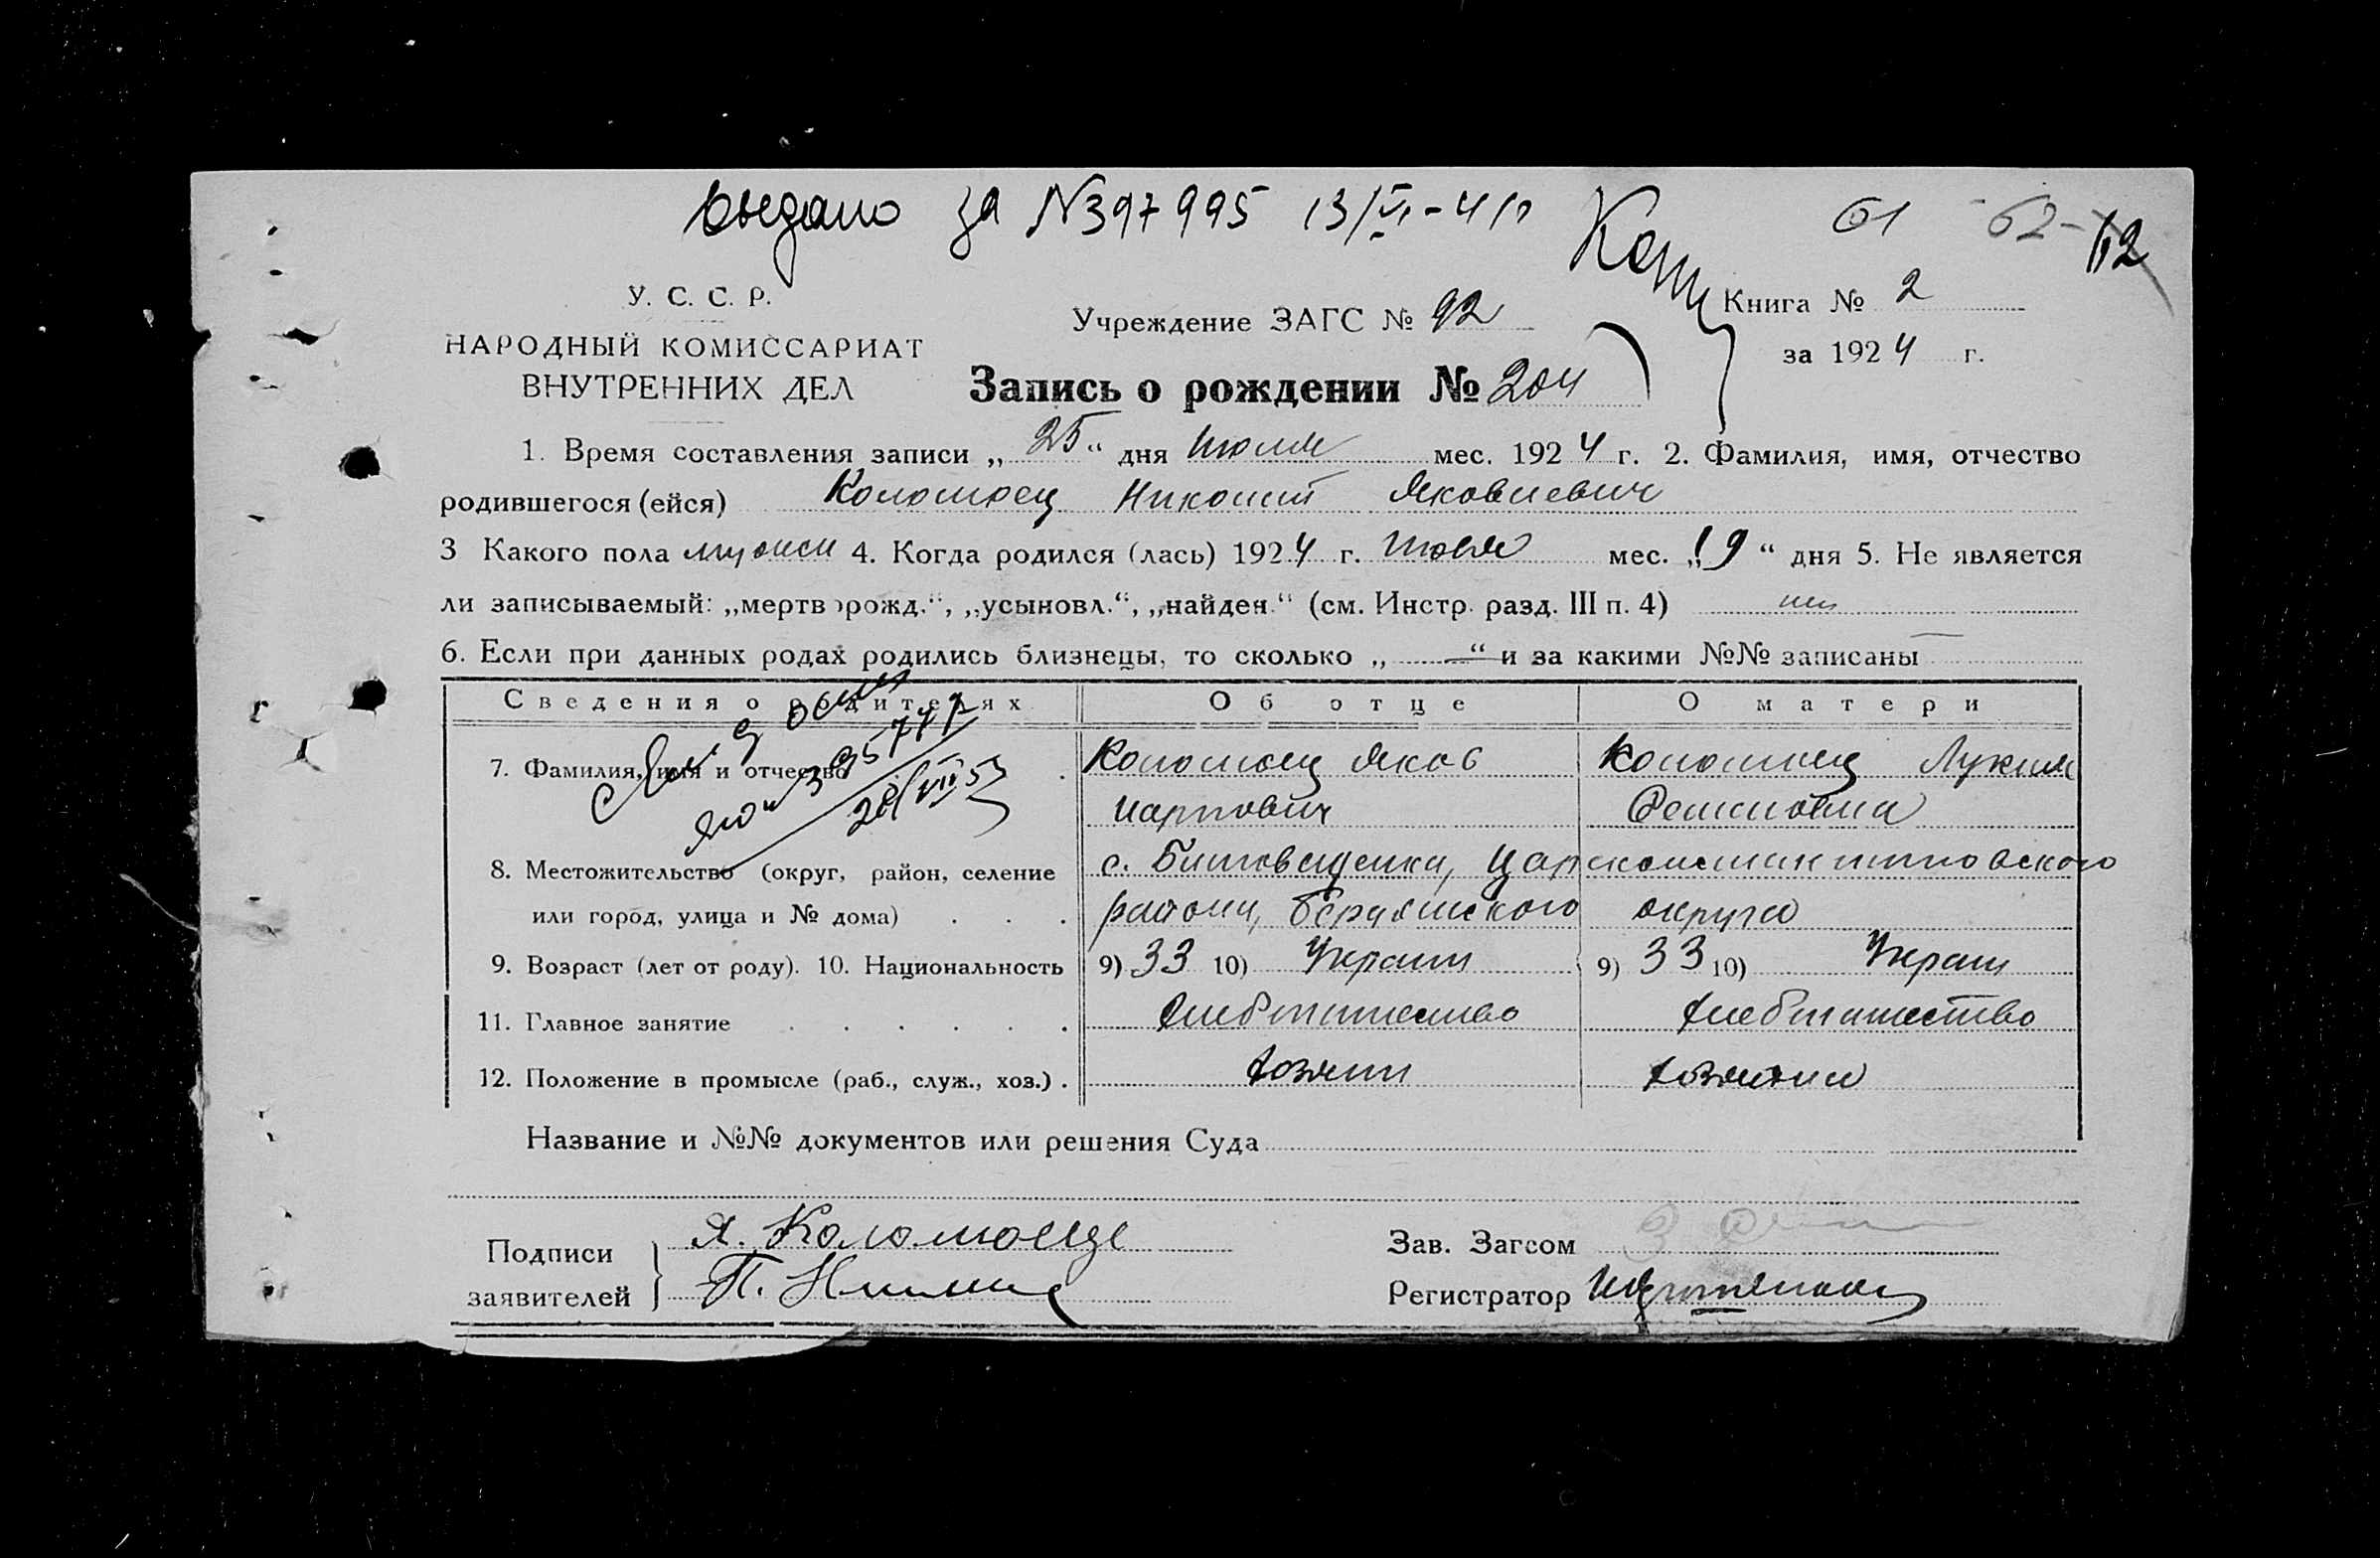 выдано за №397995 13/VI-41г
61 62- 112
У. С. С. Р.
НАРОДНЫЙ КОМИССАРИАТ
ВНУТРЕННИХ ДЕЛ
Учреждение ЗАГС № 92
Книга № 2
за 1924 г.
Запись о рождении № 204
1. Время составления записи „ 25 “ дня июля мес. 1924 г. 2. Фамилия, имя, отчество
родившегося (ейся) Коломоец Яковлевич
3 Какого пола мужск 4. Когда родился (лась) 1924 г. июля мес. „ 19 “ дня 5. Не является
ли записываемый: „мертворожд.“, „усыновл.“, „найден.“ (см. Инстр. разд. III п. 4) нет
6. Если при данных родах родились близнецы, то сколько „ — “ и за какими №№ записаны —
Сведения о родителях Об отце О матери
7. Фамилия, имя и отчество Коломоец Яков Коломоец
Карпович
8. Местожительство (округ, район, селение с. Цареконстантиновского
или город, улица и № дома) района, Бердянского округа
9. Возраст (лет от роду). 10. Национальность 9) 33 10) Украин 9) 33 10) Украин
11. Главное занятие Хлебопашество Хлебопашество
12. Положение в промысле (раб., служ., хоз.) . хозяин хозяйка
Название и №№ документов или решения Суда
Подписи
заявителей
Я. Коломоец
Зав. Загсом
Регистратор